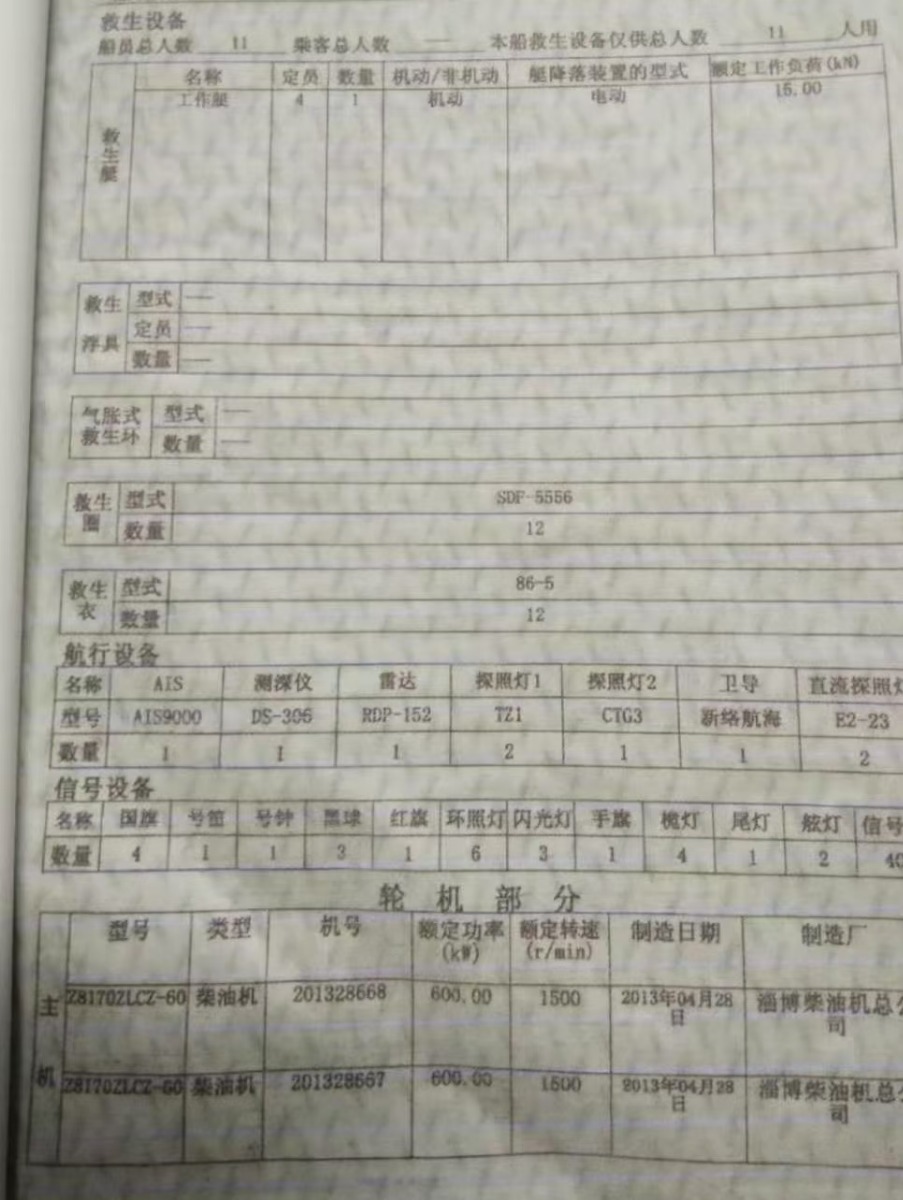 救生设备
船员总人数 11 乘客总人数 — 本船救生设备仅供总人数 11 人用
名称 定员 数量 机动/非机动 艇降落装置的型式 额定工作负荷(kN)
救生艇 工作艇 4 1 机动 电动 15.00
救生浮具 型式 —
定员 —
数量 —
气胀式救生环 型式 —
数量 —
救生圈 型式 SDF-5556
数量 12
救生衣 型式 86-5
数量 12
航行设备
名称 AIS 测深仪 雷达 探照灯1 探照灯2 卫导 直流探照灯
型号 AIS9000 DS-306 RDP-152 TZ1 CTG3 新络航海 E2-23
数量 1 1 1 2 1 1 2
信号设备
名称 国旗 号笛 号钟 黑球 红旗 环照灯 闪光灯 手旗 桅灯 尾灯 舷灯 信号
数量 4 1 1 3 1 6 3 1 4 1 2 40
轮机部分
型号 类型 机号 额定功率(kW) 额定转速(r/min) 制造日期 制造厂
主机 Z8170ZLCZ-60 柴油机 201328668 600.00 1500 2013年04月28日 淄博柴油机总公司
Z8170ZLCZ-60 柴油机 201328667 600.00 1500 2013年04月28日 淄博柴油机总公司